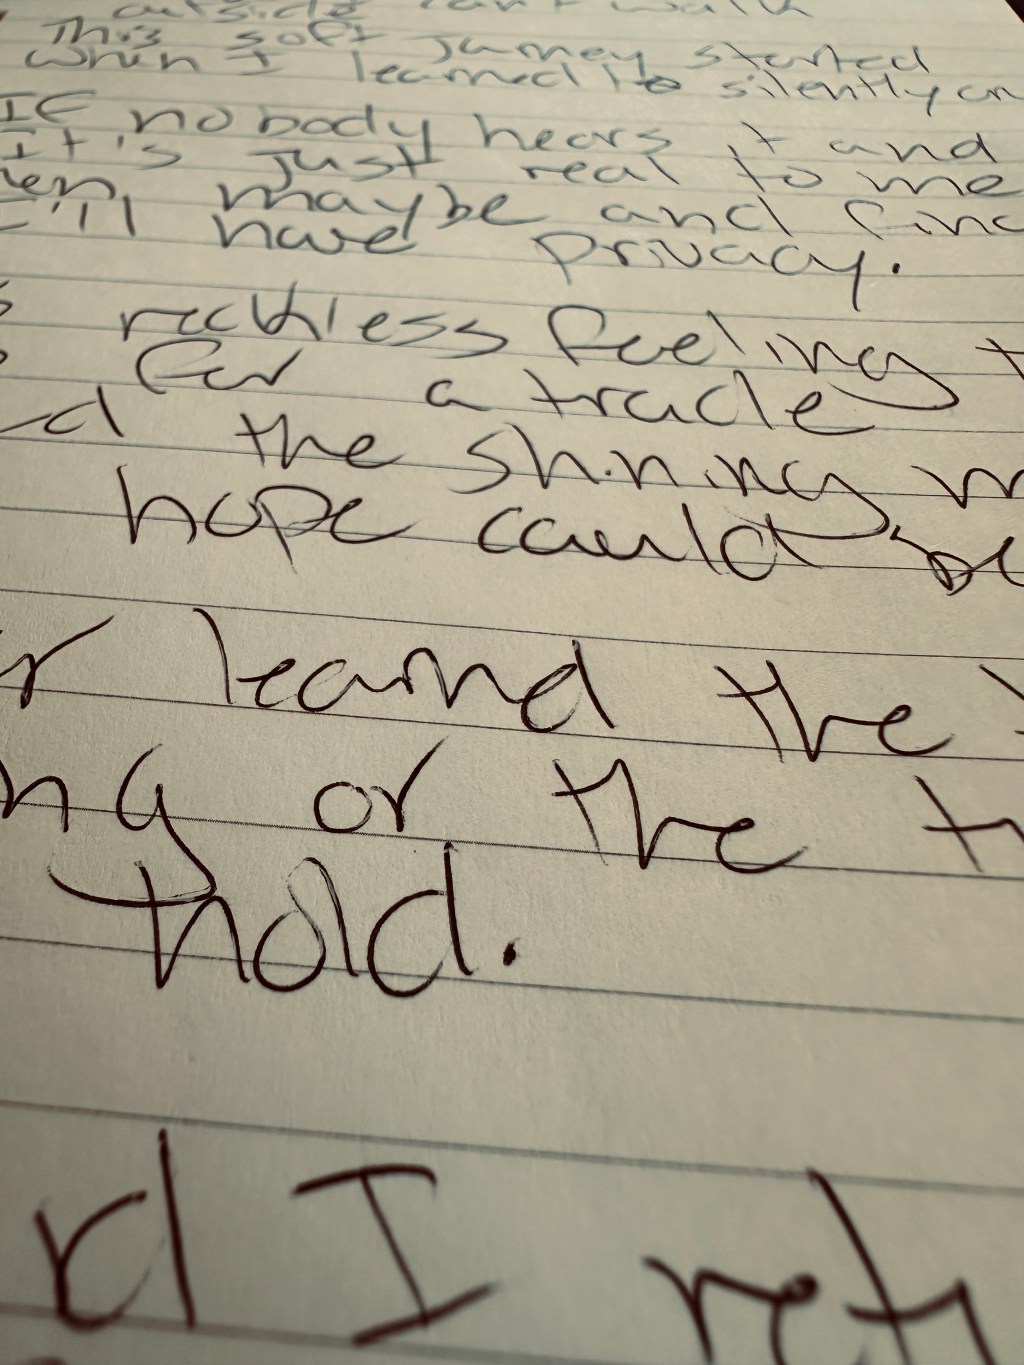 outside can't walk
This soft journey started
when I learned to silently
If nobody hears it and
It's just real to me
maybe and find
I'll have privacy.
reckless feeling
for a trade
the shining
hope could be
learned the
or the
hold.
I